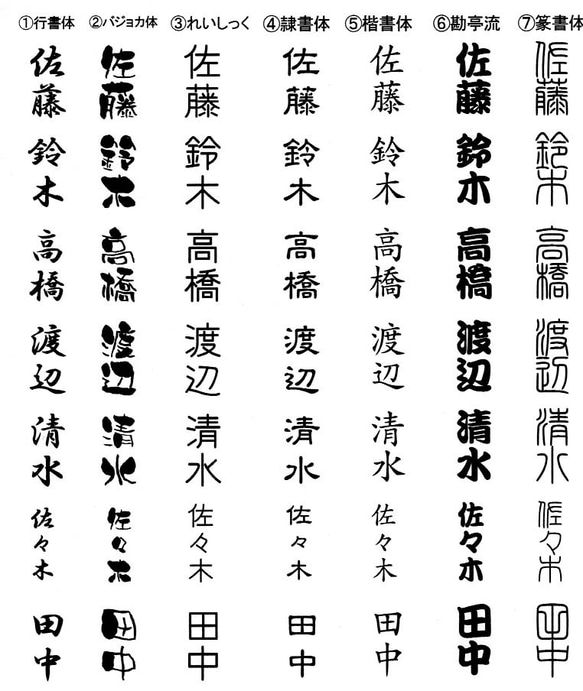 ①行書体 ②バジョカ体 ③れいしっく ④隷書体 ⑤楷書体 ⑥勘亭流 ⑦篆書体
佐藤 佐藤 佐藤 佐藤 佐藤 佐藤 佐藤
鈴木 鈴木 鈴木 鈴木 鈴木 鈴木 鈴木
高橋 高橋 高橋 高橋 高橋 高橋 高橋
渡辺 渡辺 渡辺 渡辺 渡辺 渡辺 渡辺
清水 清水 清水 清水 清水 清水 清水
佐々木 佐々木 佐々木 佐々木 佐々木 佐々木 佐々木
田中 田中 田中 田中 田中 田中 田中